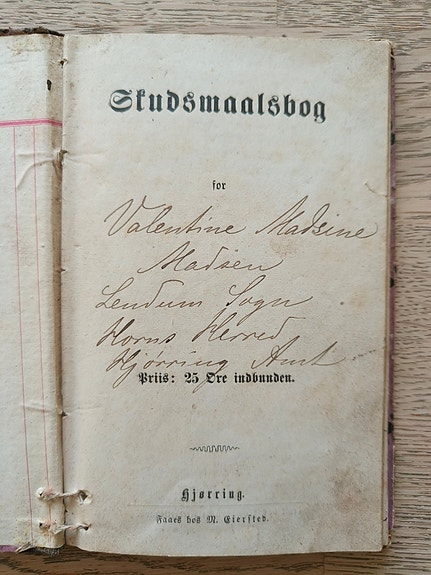 Skudsmaalsbog
for
Valentine Madsine
Madsen
Lendum Sogn
Horns Herred
Hjørring Amt
Priis: 25 Øre indbunden.
Hjørring.
Faaes hos N. Eiersted.